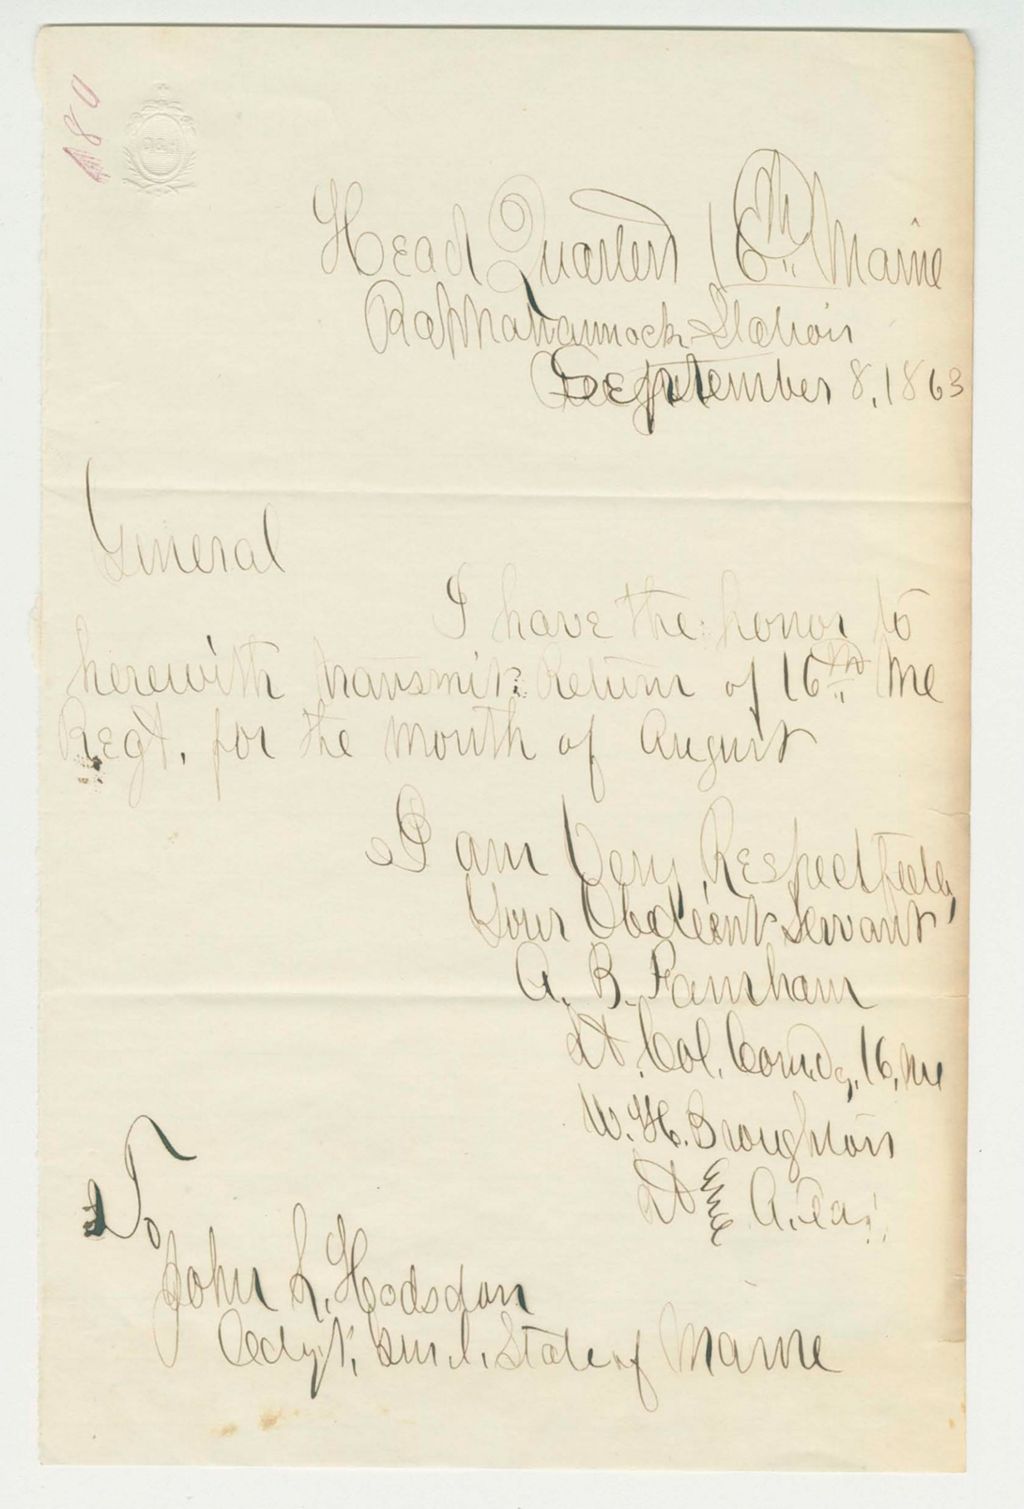 180
Head Quarters 16th Maine
Rappahannock Station
September 8, 1863
General
I have the honor to
herewith transmit Return of 16th Me
Regt, for the month of August
I am Very Respectfully,
Your Obedient Servant
A. B. Farnham
Lt. Col. Comdg, 16, Me
W. H. Broughton
Lt and A.
To
John L. Hodsdon
Adjt, Genl, State of Maine